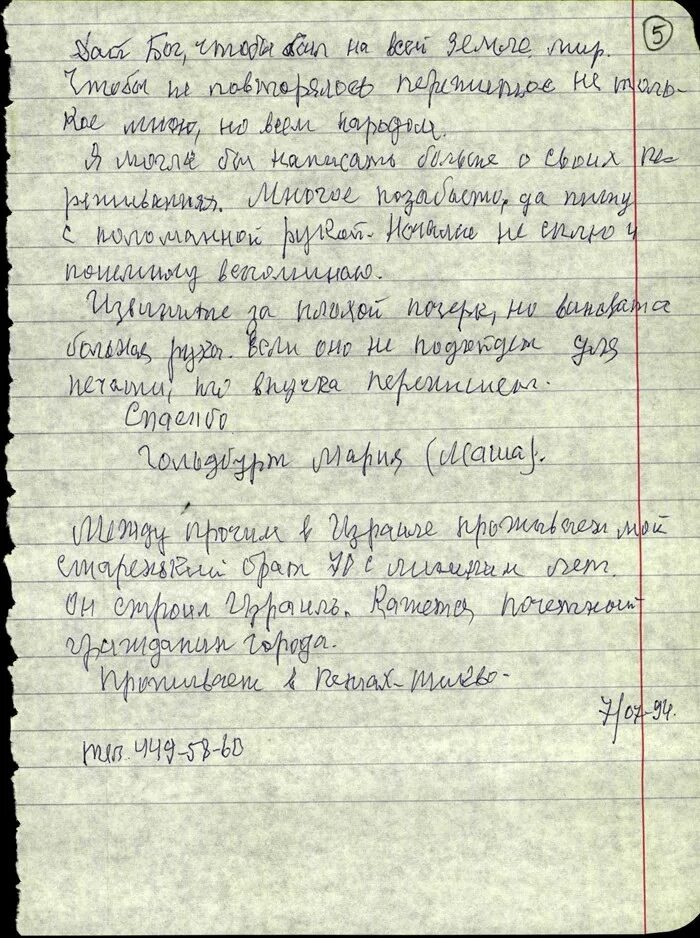 5
Дай Бог, чтобы был на всей Земле мир.
Чтобы не повторялось пережитое не толь-
кое мною, но всем народом.
Я могла бы написать больше о своих пе-
реживаниях. Многое позабыто, да пишу
с поломанной рукой. Ночами не сплю и
понемногу вспоминаю.
Извините за плохой почерк, но виновата
больная рука. Если оно не подойдет для
печати, то внучка перепишет.
Спасибо
Гольдбурт Мария (Маша).
Между прочим в Израиле проживает мой
старенький брат 70 с лишним лет.
Он строил Израиль. Кажется почетный
гражданин города.
Проживает в Петах-Тикво.
7/07-94.
тел. 449-58-60